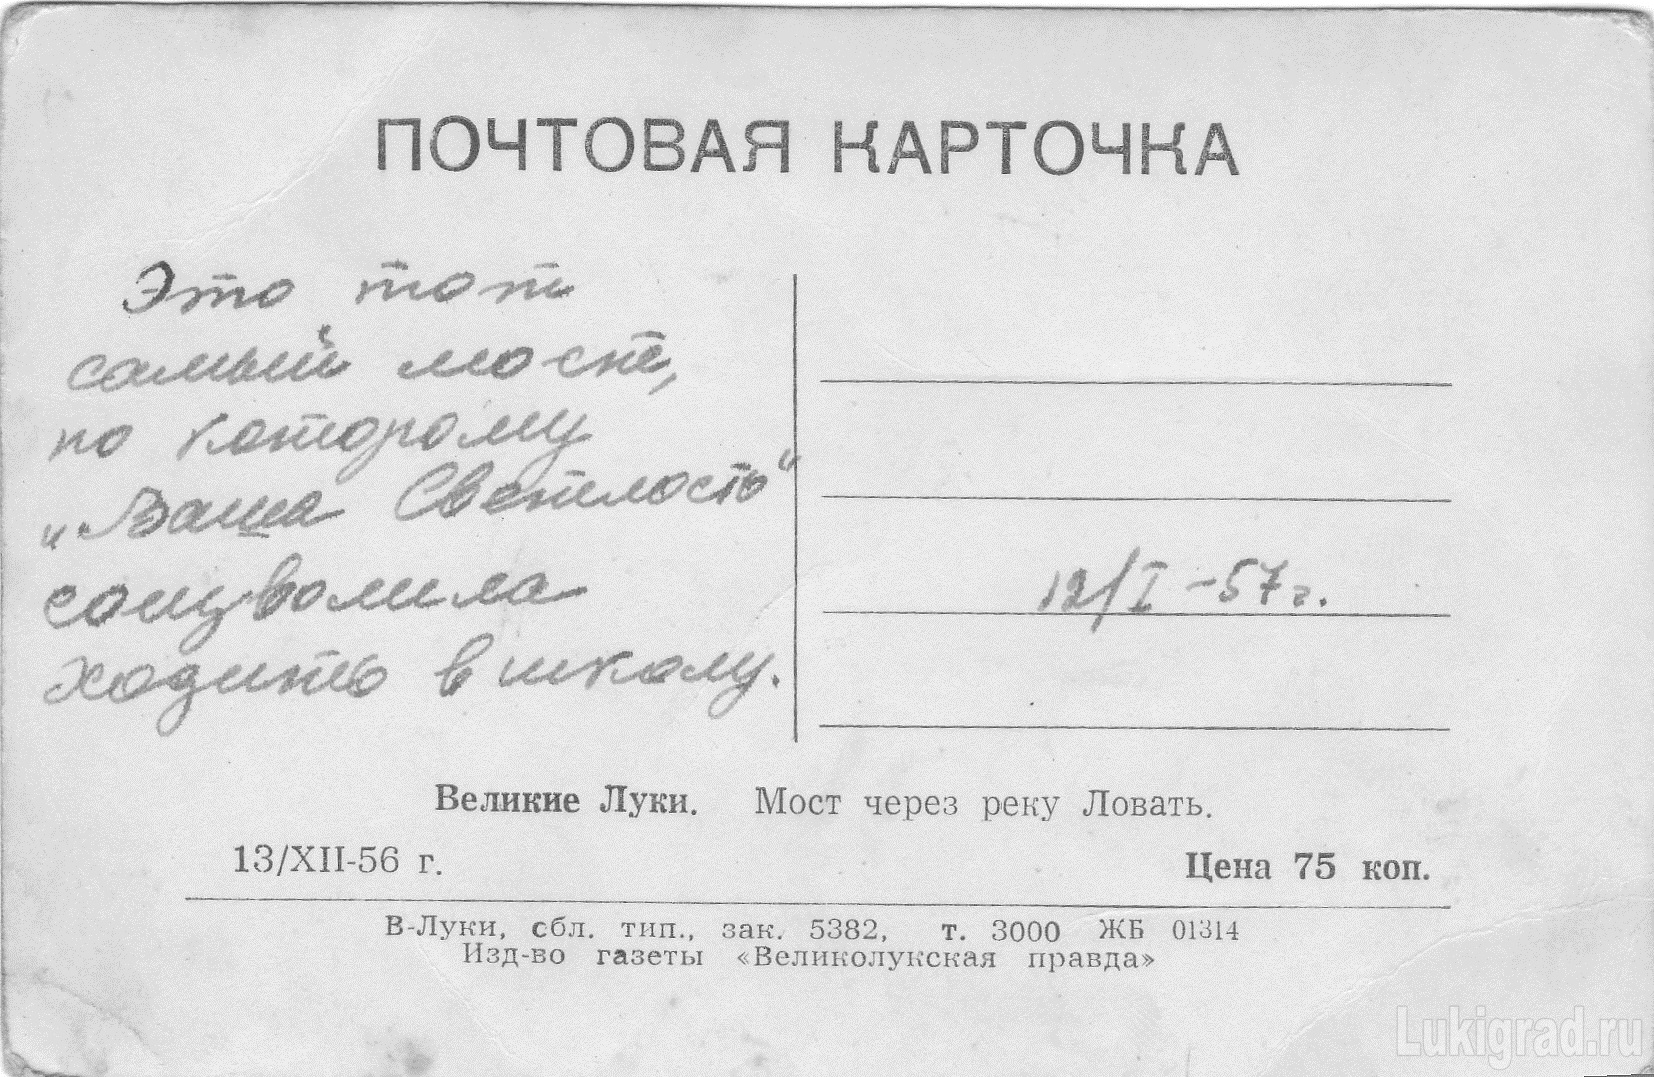 ПОЧТОВАЯ КАРТОЧКА
Это тот
самый мост,
по которому
„Ваша Светлость“
соизволила
ходить в школу.
12/I-57г.
Великие Луки. Мост через реку Ловать.
13/XII-56 г.
Цена 75 коп.
В-Луки, сбл. тип., зак. 5382, т. 3000 ЖБ 01314
Изд-во газеты «Великолукская правда»
Lukigrad.ru